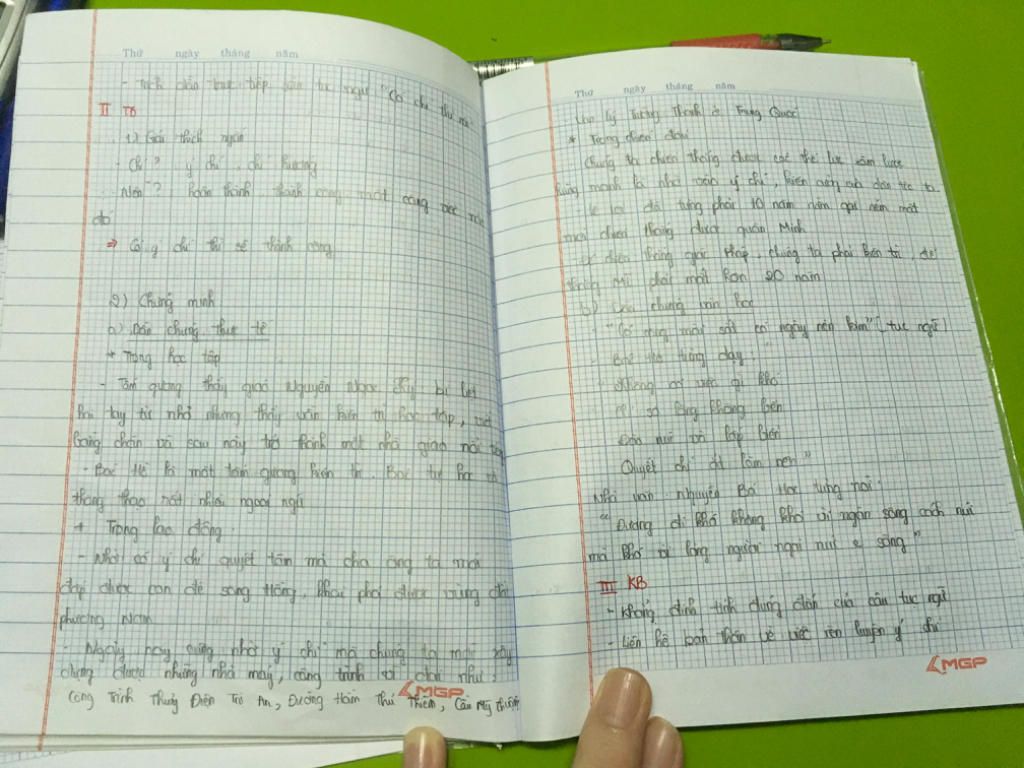 Thứ ngày tháng năm
- Trích dẫn trực tiếp câu tục ngữ "Có chí thì nên
II TB
1) Giải thích ngắn
- Chí? ý chí, chí hướng
- Nên?: hoàn thành, thành công một công việc nào
đó
=> Có ý chí thì sẽ thành công
2) Chứng minh
a) Dẫn chứng thực tế
* Trong học tập
- Tấm gương thầy giáo Nguyễn Ngọc Ký bị liệt
hai tay từ nhỏ nhưng thầy vẫn kiên trì học tập, viết
bằng chân và sau này trở thành một nhà giáo nổi
- Bác Hồ là một tấm gương kiên trì. Bác tự học
thông thạo rất nhiều ngoại ngữ
+ Trong lao động
- Nhờ có ý chí quyết tâm mà cha ông ta mới
đắp được con đê sông Hồng, khai phá được vùng đất
phương Nam
- Ngày nay cũng nhờ ý chí mà chúng ta mới xây
dựng được những nhà máy, công trình vĩ đại như:
Công Trình Thuỷ Điện Trị An, Đường Hầm Thủ Thiêm, Cầu Mỹ Thuận
MGP
Thứ ngày tháng năm
Vạn Lý Trường Thành ở Trung Quốc
* Trong chiến đấu
Chúng ta chiến thắng được các thế lực xâm lược
hùng mạnh là nhờ vào ý chí, kiên cường của dân tộc ta.
- Lê Lợi đã từng phải 10 năm nằm gai nếm mật
mới chiến thắng được quân Minh
- Để chiến thắng giặc Pháp, chúng ta phải kiên trì, để
thắng Mĩ phải mất hơn 20 năm
b) Dẫn chứng văn học
- "Có công mài sắt có ngày nên kim" (tục ngữ)
- Bác Hồ từng dạy:
"Không có việc gì khó
Chỉ sợ lòng không bền
Đào núi và lấp biển
Quyết chí ắt làm nên"
Nhà văn Nguyễn Bá Học từng nói:
"Đường đi khó không khó vì ngăn sông cách núi
mà khó vì lòng người ngại núi e sông"
III KB
- Khẳng định tính đúng đắn của câu tục ngữ
- Liên hệ bản thân về việc rèn luyện ý chí
MGP